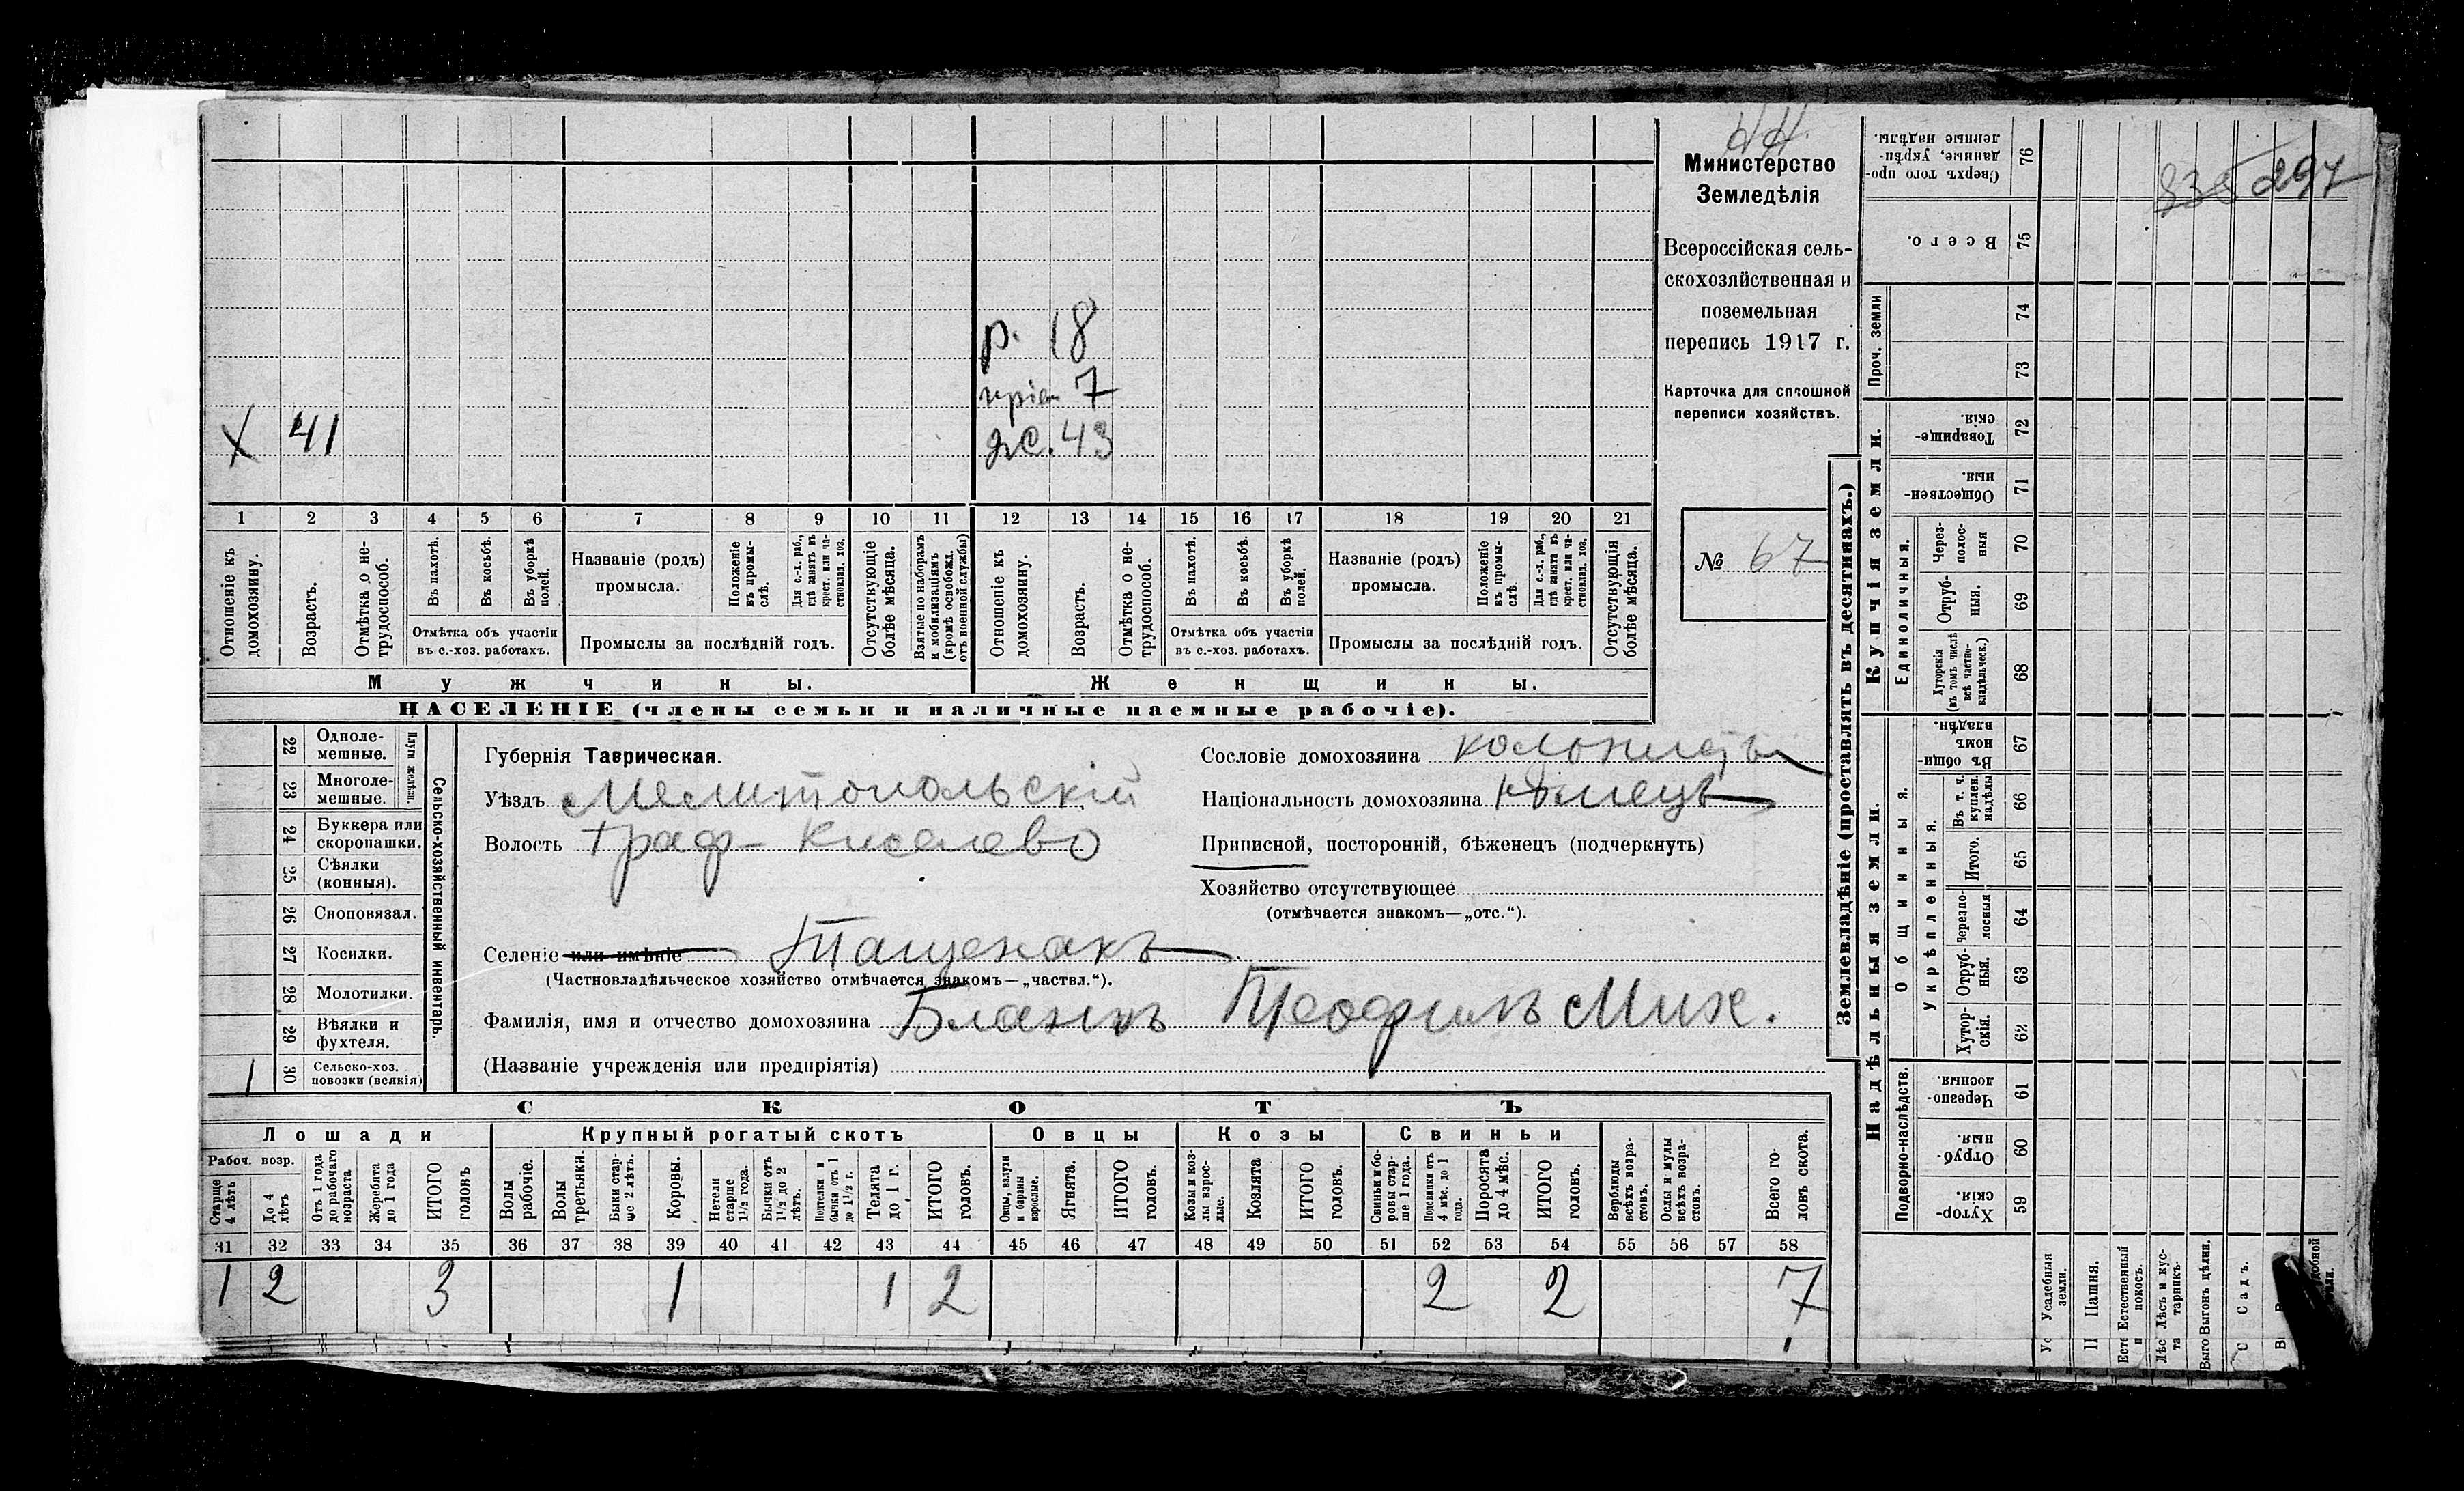 НН
Министерство
Земледѣлія
Всероссійская сель-
скохозяйственная и
поземельная
перепись 1917 г.
Карточка для сплошной
переписи хозяйствъ.
№ 67
297
р. 18
пріем 7
Х 41 ж. 43
1 2 3 4 5 6 7 8 9 10 11 12 13 14 15 16 17 18 19 20 21
Отношеніе къ домохозяину.
Возрастъ.
Отмѣтка о не-трудоспособ.
Въ пахотѣ.
Въ косьбѣ.
Въ уборкѣ полей.
Отмѣтка объ участіи
въ с.-хоз. работахъ.
Названіе (родъ)
промысла.
Положеніе въ промы-слѣ.
Для с.-х. раб., гдѣ занятъ въ крест. или ча-стновлад. хоз.
Промыслы за послѣдній годъ.
Отсутствующіе болѣе мѣсяца.
Взятые по наборамъ и мобилизаціямъ (кромѣ освобожд. отъ военной службы)
Отношеніе къ домохозяину.
Возрастъ.
Отмѣтка о не-трудоспособ.
Въ пахотѣ.
Въ косьбѣ.
Въ уборкѣ полей.
Отмѣтка объ участіи
въ с.-хоз. работахъ.
Названіе (родъ)
промысла.
Положеніе въ промы-слѣ.
Для с.-х. раб., гдѣ занята въ крест. или ча-стновлад. хоз.
Промыслы за послѣдній годъ.
Отсутствующія болѣе мѣсяца.
Мужчины. Женщины.
НАСЕЛЕНІЕ (члены семьи и наличные наемные рабочіе).
22 Одноле-мешные.
23 Многоле-мешные.
Плуги желѣзн.
24 Буккера или скоропашки.
25 Сѣялки (конныя).
26 Сноповязал.
27 Косилки.
28 Молотилки.
29 Вѣялки и фухтеля.
1 30 Сельско-хоз. повозки (всякія)
Сельско-хозяйственный инвентарь.
Губернія Таврическая.
Уѣздъ Мелитопольскій
Волость Граф-Киселево
Селеніе или имѣніе Тащенакъ
(Частновладѣльческое хозяйство отмѣчается знакомъ—„частвл.“).
Фамилія, имя и отчество домохозяина Бланкъ Теофилъ Мих.
(Названіе учрежденія или предпріятія)
Сословіе домохозяина колонистъ
Національность домохозяина нѣмецъ
Приписной, посторонній, бѣженецъ (подчеркнуть)
Хозяйство отсутствующее
(отмѣчается знакомъ—„отс.“).
СКОТЪ
Лошади Крупный рогатый скотъ Овцы Козы Свиньи
Рабоч. возр.
Старше 4 лѣтъ
До 4 лѣтъ
Отъ 1 года до рабочаго возраста
Жеребята до 1 года
ИТОГО головъ
Волы рабочіе.
Волы третьяки.
Быки стар-ше 2 лѣтъ.
Коровы.
Нетели старше 1½ года.
Бычки отъ 1½ до 2 лѣтъ.
Подтелки и бычки отъ 1 до 1½ г.
Телята до 1 г.
ИТОГО головъ.
Овцы, валухи и бараны взрослые.
Ягнята.
ИТОГО головъ.
Козы и коз-лы взрос-лые.
Козлята
ИТОГО головъ.
Свиньи и бо-ровы стар-ше 1 года.
Подсвинки отъ 4 мѣс. до 1 года.
Поросята до 4 мѣс.
ИТОГО головъ.
Верблюды всѣхъ возра-стовъ.
Ослы и мулы всѣхъ возра-стовъ.
Всего го-ловъ скота.
31 32 33 34 35 36 37 38 39 40 41 42 43 44 45 46 47 48 49 50 51 52 53 54 55 56 57 58
1 2 3 1 1 2 2 2 7
Землевладѣніе (проставлять въ десятинахъ.)
Сверхъ того про-данные, укрѣп-ленные надѣлы. 76
Всего. 75
Проч. земли 74 73
Купчія земли.
Товарище-скія 72
Обществен-ныя 71
Единоличныя.
Через-полос-ныя 70
Отруб-ныя. 69
Хуторскія (въ томъ числѣ всѣ частно-владѣльческ.) 68
Надѣльныя земли.
Общинныя.
Въ общи-номъ владѣн. 67
Укрѣпленныя.
Въ т. ч. куплен. надѣлы 66
Итого. 65
Черезпо-лосныя 64
Отруб-ныя. 63
Хутор-скія. 62
Подворно-наслѣдств.
Черезпо-лосныя 61
Отруб-ныя. 60
Хутор-скія 59
Усадебныя земли.
Пашня.
Естественный покосъ.
Лѣсъ и кус-тарникъ.
Выгонъ цѣлин.
Садъ.